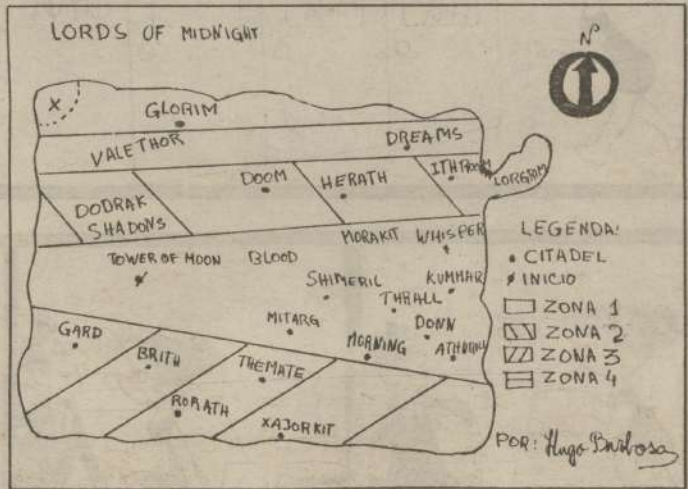 LORDS OF MIDNIGHT
N
X
GLORIM
VALETHOR
DREAMS
DOOM
HERATH
ITHROOM
LORGRIM
DODRAK
SHADONS
MORAKIT
WHISPER
TOWER OF MOON
BLOOD
SHIMERIL
KUMMAR
THRALL
MITARG
DONN
MORNING
GARD
BRITH
THEMATE
RORATH
XAJORKIT
LEGENDA:
CITADEL
INICIO
ZONA 1
ZONA 2
ZONA 3
ZONA 4
POR: Hugo Barbosa